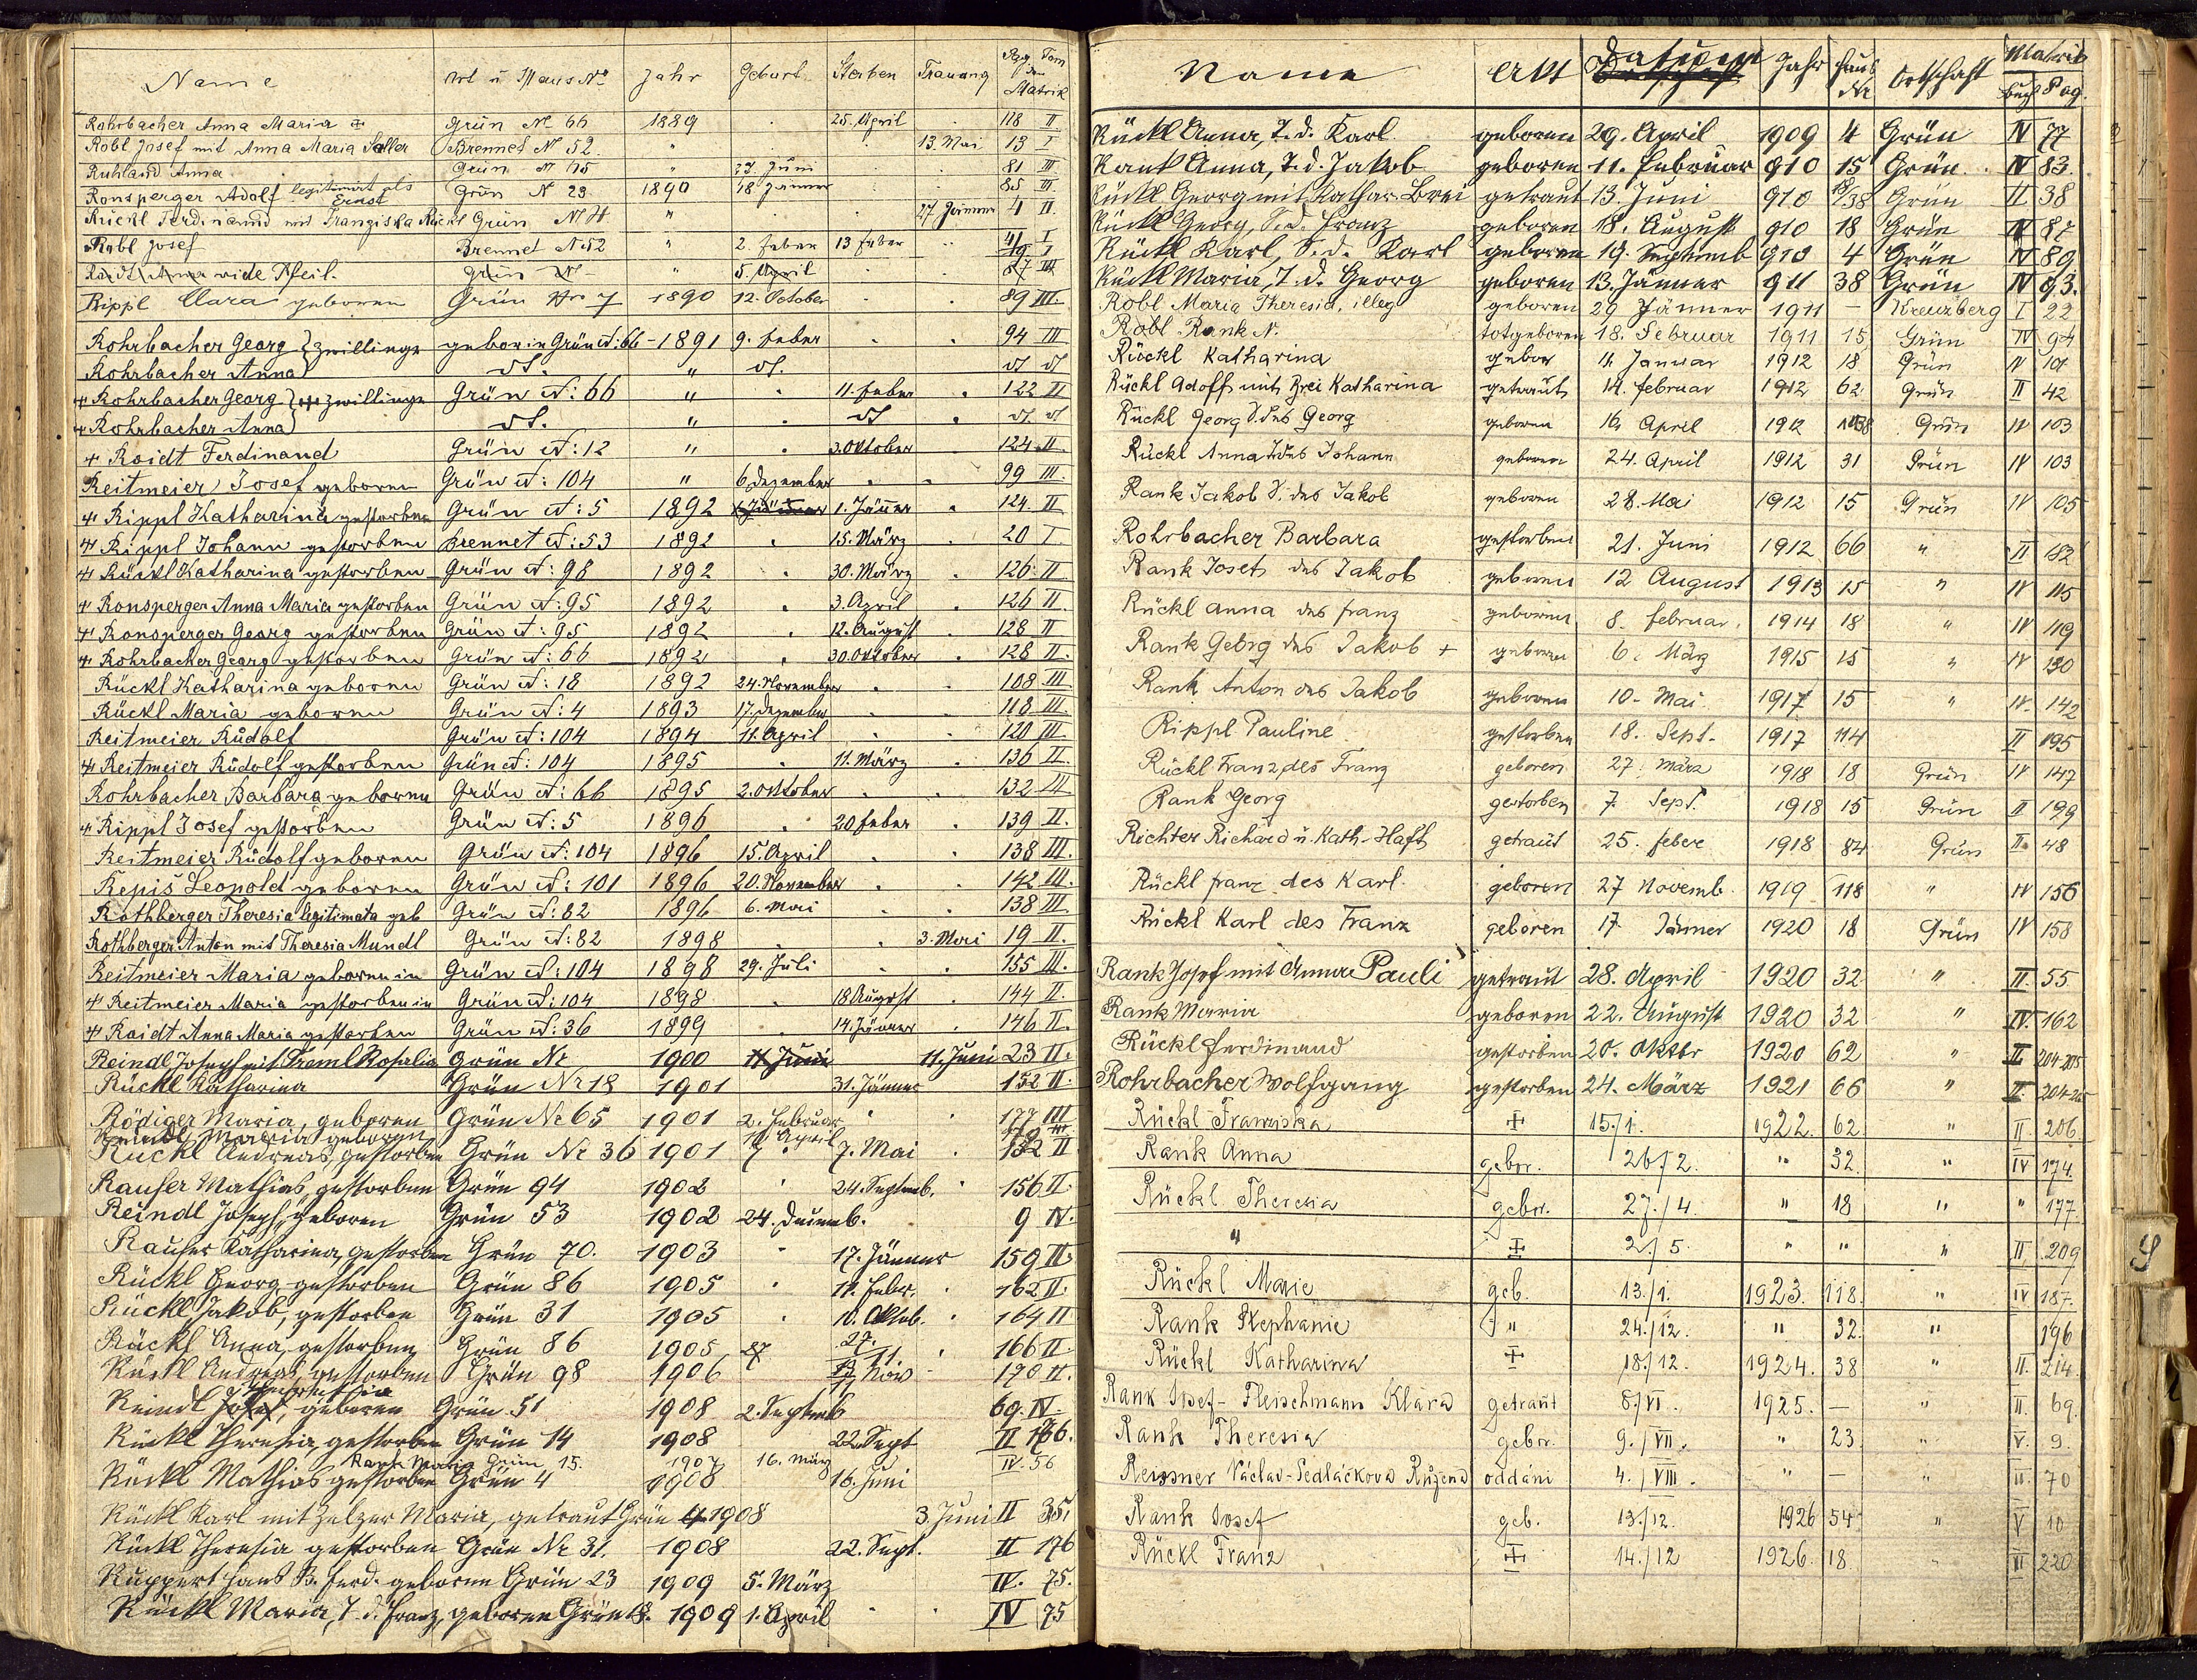 Name Ort u Haus No Jahr Geburt Sterben Trauung Pag Tom der Matrik
Rohrbacher Anna Maria Grün No 66 1889 25. April 118 II
Robl Josef mit Anna Maria Saller Brennet No 52 " 13. Mai 13 I
Ruhland Anna Grün No 15 " 27. Juni 81 III
Ronsperger Adolf legitimirt als Ernst Grün No 23 1890 18 Jänner 85 III
Rückl Ferdinand mit Franziska Rückl Grün No " 27. Jänner 4 II.
Robl Josef Brennet No 52 " 2. Feber 13 Feber I
Roidt Anna vide Pfeil. Grün No " 5. April 87 III
Rippl Clara geboren Grün No 7 1890 12. October 89 III.
Rohrbacher Georg } Zwillinge gebor in Grün N: 66 - 1891 9. Feber 94 III
Rohrbacher Anna dt. " dt. dt dt
Rohrbacher Georg } Zwillinge Grün N: 66 " 11. Feber 122 II
Rohrbacher Anna dt. " dt dt. dt
Roidt Ferdinand Grün N: 12 " 3. Oktober 124 II
Reitmeier Josef geboren Grün N: 104 " 6 Dezember 99 III.
Rippl Katharina gestorben Grün N: 5 1892 1. Jänner 1. Jänner 124. II
Rippl Johann gestorben Brennet N: 53 1892 15. März 20 I
Rückl Katharina gestorben Grün N: 98 1892 30. März 126. II
Ronsperger Anna Maria gestorben Grün N: 95 1892 3. April 126 II.
Ronsperger Georg gestorben Grün N: 95 1892 12. August 128 II
Rohrbacher Georg gestorben Grün N: 66 1892 30. Oktober 128 II.
Rückl Katharina geboren Grün N: 18 1892 24. November 108 III
Rückl Maria geboren Grün N: 4 1893 17. Dezember 118 III.
Reitmeier Rudolf Grün N: 104 1894 11. April 120 III
Reitmeier Rudolf gestorben Grün N: 104 1895 11. März 136 II.
Rohrbacher Barbara geboren Grün N: 66 1895 2. Oktober 132 III
Rippl Josef gestorben Grün N: 5 1896 20 Feber 139 II.
Reitmeier Rudolf geboren Grün N: 104 1896 15. April 138 III.
Repiš Leopold geboren Grün N: 101 1896 20. November 142 III.
Rothberger Theresia legitimata geb Grün N: 82 1896 6. Mai 138 III.
Rothberger Anton mit Theresia Mundl Grün N: 82 1898 3. Mai 19 II.
Reitmeier Maria geboren in Grün N: 104 1898 29. Juli 155 III.
Reitmeier Maria gestorben in Grün N: 104 1898 18 August 144 II.
Roidt Anna Maria gestorben Grün N: 36 1899 14. Jänner 146 II.
Reindl Joseph mit Treml Rosalia Grün Nr 1900 11 Juni 11. Juni 23 II.
Rückl Katharina Grün Nr 18 1901 31. Jänner 152 II.
Rödiger Maria, geboren Grün Nr 65 1901 2. Februar 177 III
Reindl Maria geboren 10 April
Rückl Andreas, gestorben Grün Nr 36 1901 7. Mai 152 II
Rauser Mathias, gestorben Grün 94 1902 24. Septemb. 156 II.
Reindl Joseph, geboren Grün 53 1902 24. Decemb. 9 IV.
Rauser Katharina, gestorben Grün 70. 1903 17. Jänner 159 II.
Rückl Georg gestorben Grün 86 1905 11. Feber. 162 II.
Rückl Jakob, gestorben Grün 31 1905 10. Oktob. 164 II
Rückl Anna, gestorben Grün 86 1905 27 27/11 166 II.
Rückl Andreas, gestorben Grün 98 1906 Nov 170 II.
Reindl Josef, geboren Grün 51 1908 2. Septemb 69. IV.
Rückl Theresia gestorben Grün 14 1908 22. Sept II 176.
Rank Maria Grün 15. 1907 16. März IV. 56
Rückl Mathias gestorben Grün 4 1908 16. Juni
Rückl Karl mit Zelzer Maria, getraut Grün 4 1908 3. Juni II 35.
Rückl Theresia gestorben Grün Nr 31. 1908 22. Sept. II 176
Ruppert Hans B. Ferd. geboren Grün 23 1909 5. März IV. 75.
Rückl Maria, T. d. Franz, geboren Grün 18. 1909 1. April IV 75
Name Akt Datum Jahr Haus Nr Ortschaft Matrik Buch Pag.
Rückl Anna, T. d. Karl geboren 29. April 1909 4 Grün IV 77
Rank Anna, T. d. Jakob geboren 11. Februar 910 15 Grün IV 83.
Rückl Georg mit Kathar. Brei getraut 13. Juni 910 18/38 Grün II 38
Rückl Georg, S. d. Franz geboren 18. August 910 18 Grün IV 87
Rückl Karl, S. d. Karl geboren 19. Septemb 910 4 Grün IV 89
Rückl Maria, T. d. Georg geboren 13. Jänner 911 38 Grün IV 93.
Robl Maria Theresia, illeg geboren 29 Jänner 1911 — Kreuzberg I 22
Robl Rank N. totgeboren 18. Februar 1911 15 Grün IV 94
Rückl Katharina gebor 4. Januar 1912 18 Grün IV 101
Rückl Adolf mit Brei Katharina getraut 14. Februar 1912 62 Grün II 42
Rückl Georg S. des Georg geboren 16 April 1912 38 Grün IV 103
Rückl Anna T. des Johann geboren 24. April 1912 31 Grün IV 103
Rank Jakob S. des Jakob geboren 28. Mai 1912 15 Grün IV 105
Rohrbacher Barbara gestorben 21. Juni 1912 66 " II 182
Rank Josef des Jakob geboren 12 August 1913 15 " IV 115
Rückl Anna des Franz geboren 8. Februar. 1914 18 " IV 119
Rank Georg des Jakob + geboren 6. März 1915 15 " IV 130
Rank Anton des Jakob geboren 10. Mai 1917 15 " IV. 142
Rippl Pauline gestorben 18. Sept. 1917 114 II 195
Rückl Franz, des Franz geboren 27. März 1918 18 Grün IV 147
Rank Georg gestorben 7. Sept. 1918 15 Grün II 199
Richter Richard u. Kath. Haft getraut 25. Feber 1918 84 Grün II. 48
Rückl Franz des Karl. geboren 27 Novemb. 1919 118 " IV 156
Rückl Karl des Franz geboren 17. Jänner 1920 18 Grün IV 158
Rank Josef mit Anna Pauli getraut 28. April 1920 32 " II. 55
Rank Maria geboren 22. August 1920 32 " IV. 162
Rückl Ferdinand gestorben 20. Oktbr 1920 62 " II. 204-205
Rohrbacher Wolfgang gestorben 24. März 1921 66 " II.
Rückl Franziska + 15./1. 1922. 62 " II 206.
Rank Anna gebor. 26/2. " 32. " IV 174.
Rückl Theresia gebor. 27./4. " 18 " " 177.
" + 2./5. " " " II 209
Rückl Marie geb. 13./1. 1923. 118. " IV 187.
Rank Stephanie " 24./12. " 32. " 196
Rückl Katharina + 18./12. 1924. 38 " II. 214.
Rank Josef - Fleischmann Klára getraut 8./VI. 1925. — " II. 69.
Rank Theresia gebor. 9./VII. " 23 " V. 9.
Reissner Václav - Sedláčková Růžena oddáni 4./VIII. " — " II. 70
Rank Josef geb. 13./12. 1926 54 " V 10
Rückl Franz + 14./12 1926. 18. " II 220